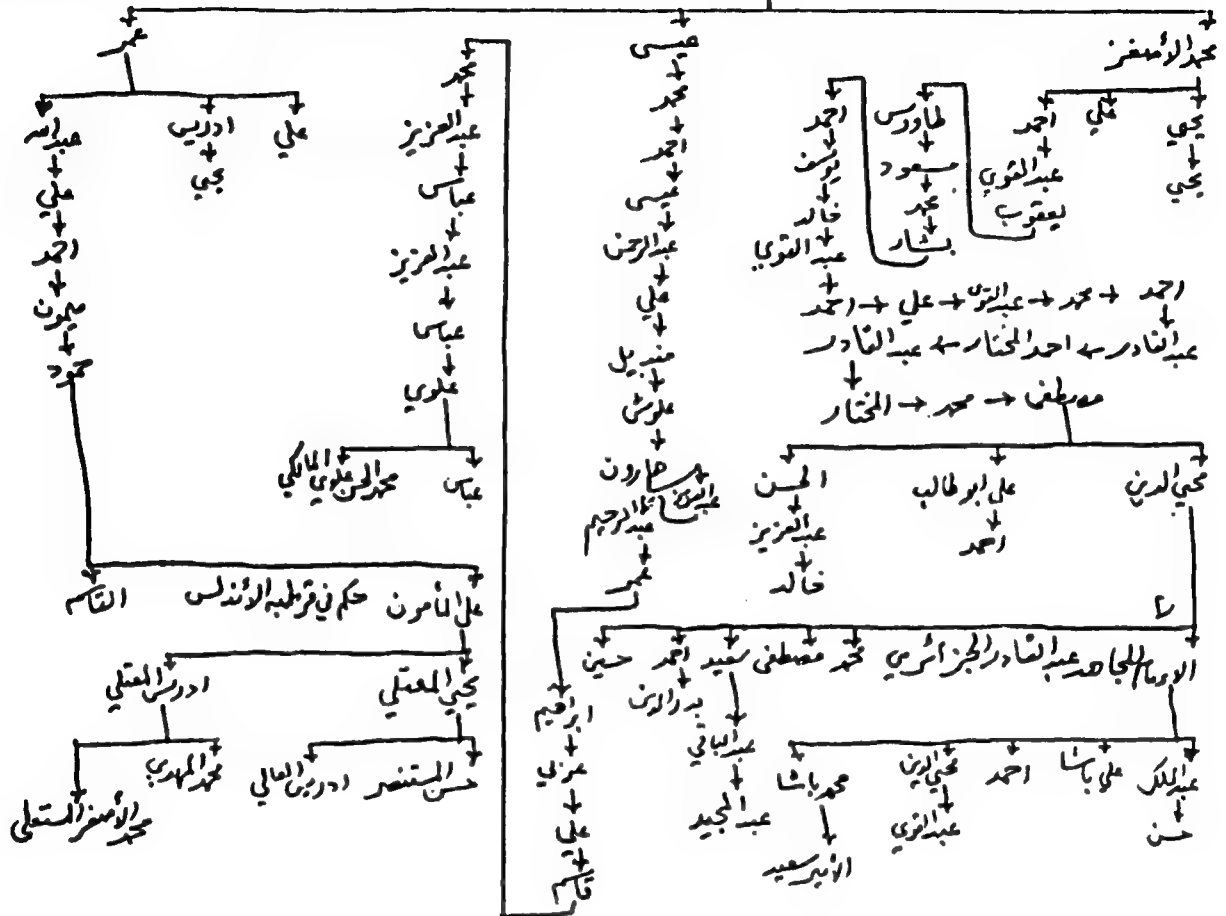 محمد الأصغر
عيسى
عمر
يحيى
علي
احمد
يحيى
عبدالقوي
يعقوب
طاووس
مسعود
محمد
بشار
احمد
يوسف
خالد
عبدالقوي
احمد ← علي ← عبدالقوي ← محمد ← احمد
عبدالقادر ← احمد المختار ← عبدالقادر
المختار ← محمد ← مصطفى
محيي الدين
علي ابو طالب
احمد
الحسن
عبدالعزيز
خالد
الإمام المجاهد عبدالقادر الجزائري
محمد
مصطفى
سعيد
احمد
حسين
عبدالباقي
عبدالمجيد
بدرالدين
عبدالملك
حسن
علي باشا
احمد
محيي الدين
عبدالقوي
محمد باشا
الأمير سعيد
محمد
عيسى
عبدالرحمن
علي
منديل
علوش
هارون
عبدالعزيز
عبدالرحيم
ابراهيم
عربي
علي
قاسم
محمد
عبدالعزيز
عباس
عبدالعزيز
عباس
علوي
عباس
محمد الحسن علوي المالكي
علي
ادريس
يحيى
عبدالله
علي
احمد
ميمون
حمود
علي المأمون
حكم في قرطبه الأندلس
القاسم
يحيى المعتلي
ادريس المعتلي
حسن المستنصر
ادريس العالي
محمد المهدي
محمد الأصغر المستعلي